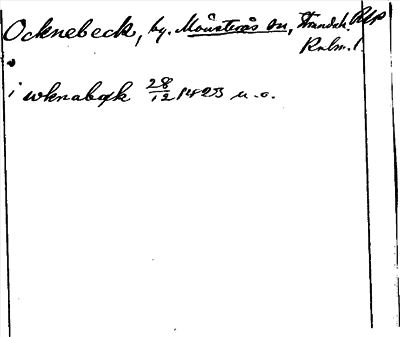 Ocknebeck, by. Mönsterås sn, Strandah. Rlp
Kalm. l
i wknabæk 28/12 1423 u. o.